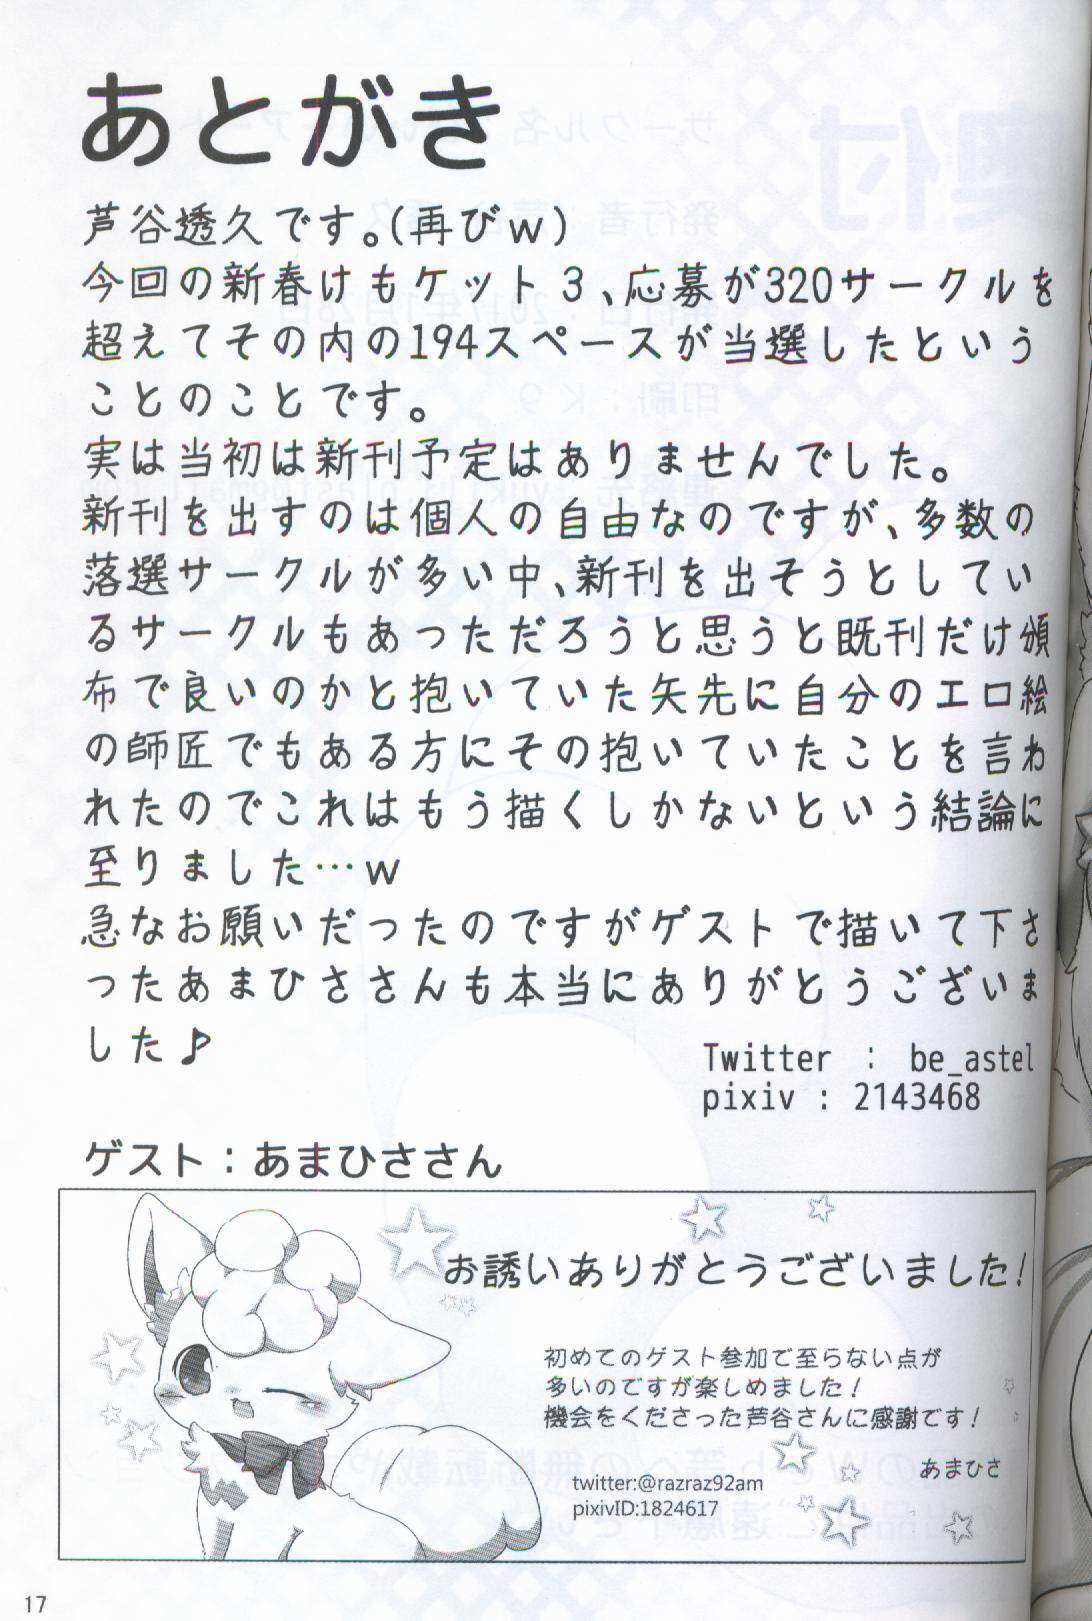 あとがき
芦谷透久です。(再びｗ)
今回の新春けもケット３、応募が320サークルを
超えてその内の194スペースが当選したという
ことのことです。
実は当初は新刊予定はありませんでした。
新刊を出すのは個人の自由なのですが、多数の
落選サークルが多い中、新刊を出そうとしてい
るサークルもあっただろうと思うと既刊だけ頒
布で良いのかと抱いていた矢先に自分のエロ絵
の師匠でもある方にその抱いていたことを言わ
れたのでこれはもう描くしかないという結論に
至りました…ｗ
急なお願いだったのですがゲストで描いて下さ
ったあまひささんも本当にありがとうございま
した♪
Twitter : be_astel
pixiv : 2143468
ゲスト：あまひささん
お誘いありがとうございました！
初めてのゲスト参加で至らない点が
多いのですが楽しめました！
機会をくださった芦谷さんに感謝です！
あまひさ
twitter:@razraz92am
pixivID:1824617
17